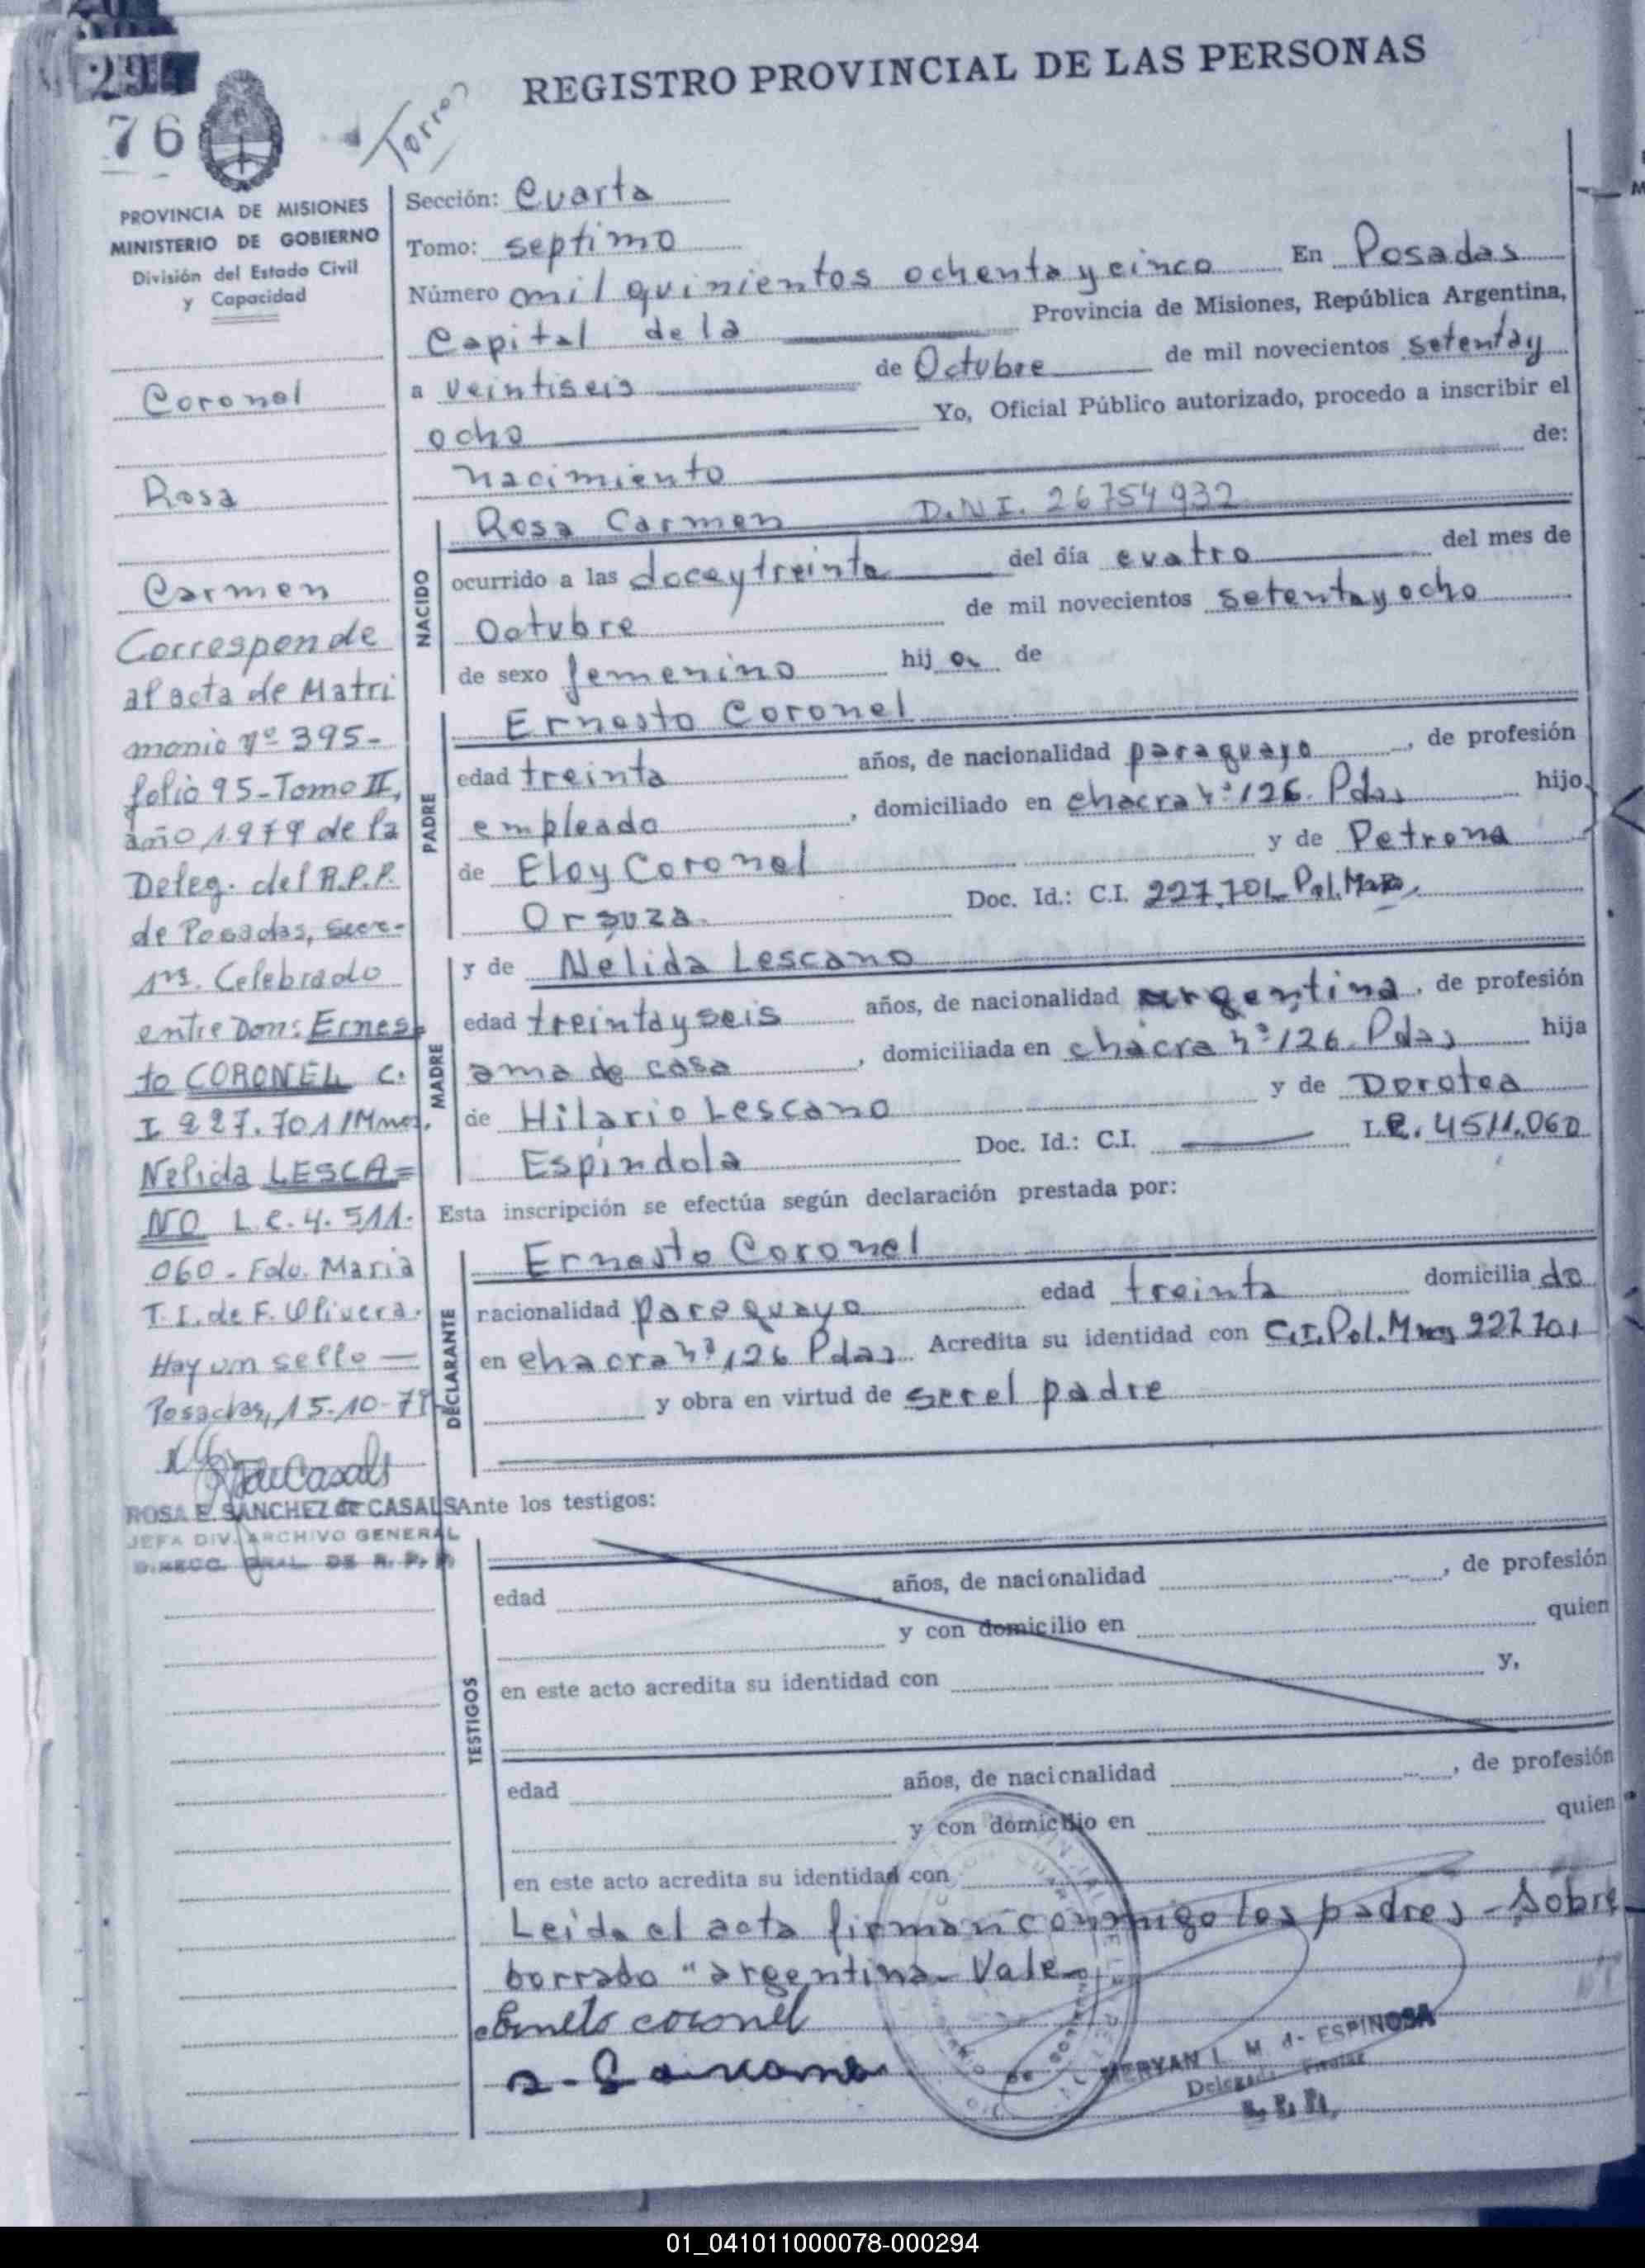 294
76
Torres
REGISTRO PROVINCIAL DE LAS PERSONAS
PROVINCIA DE MISIONES
MINISTERIO DE GOBIERNO
División del Estado Civil
y Capacidad
Coronel
Rosa
Carmen
Corresponde
al acta de Matri
monio nº 395-
folio 95-Tomo II,
año 1979 de la
Deleg. del R.P.P.
de Posadas, secc-
1ra. Celebrado
entre Don: Ernes
to CORONEL C.
I 227.701/Mnes.
Nelida LESCA=
NO L.C. 4.511.
060 - Fdo. Maria
T. I. de F. Olivera.
Hay un sello —
Posadas, 15-10-79
ROSA E. SANCHEZ de CASALS
JEFA DIV. ARCHIVO GENERAL
DIRECC. GRAL DE R. P. P.
Sección: Cuarta
Tomo: septimo
Número mil quinientos ochenta y cinco En Posadas
Capital de la Provincia de Misiones, República Argentina,
a veintiseis de Octubre de mil novecientos setenta y
ocho Yo, Oficial Público autorizado, procedo a inscribir el
nacimiento de:
NACIDO
Rosa Carmen D.N.I. 26754932
ocurrido a las doce y treinta del día cuatro del mes de
Octubre de mil novecientos setenta y ocho
de sexo femenino hij a de
PADRE
Ernesto Coronel
edad treinta años, de nacionalidad paraguayo, de profesión
empleado, domiciliado en chacra nº 126. Pdas hijo
de Eloy Coronel y de Petrona
Orzuza Doc. Id.: C.I. 227.701 Pol. Mnes.
MADRE
y de Nélida Lescano
edad treinta y seis años, de nacionalidad argentina, de profesión
ama de casa, domiciliada en chacra nº 126. Pdas hija
de Hilario Lescano y de Dorotea
Espíndola Doc. Id.: C.I. — L.C. 4511.060
Esta inscripción se efectúa según declaración prestada por:
DECLARANTE
Ernesto Coronel
nacionalidad paraguayo edad treinta domicilia do
en chacra nº 126 Pdas Acredita su identidad con C.I. Pol. Mnes 227701
y obra en virtud de ser el padre
Ante los testigos:
TESTIGOS
edad años, de nacionalidad , de profesión
y con domicilio en quien
en este acto acredita su identidad con y,
edad años, de nacionalidad , de profesión
y con domicilio en quien
en este acto acredita su identidad con
Leida el acta firman conmigo los padres - Sobre
borrado "argentina - Vale
Ernesto coronel
MERYAN I. M. de ESPINOSA
Delegada Titular
01_041011000078-000294